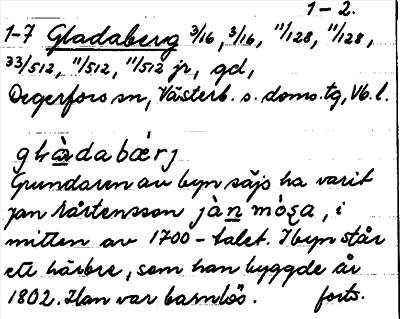 1-2.
1-7 Gladaberg 3/16, 3/16, 11/128, 11/128,
33/512, 11/512, 11/512 jr, gd,
Degerfors sn, Västerb. s. doms. tg, Vb. l.
glàdabærj
Grundaren av byn säjs ha varit
Jan Mårtensson jàn móʂa, i
mitten av 1700-talet. I byn står
ett härbre, som han byggde år
1802. Han var barnlös. forts.